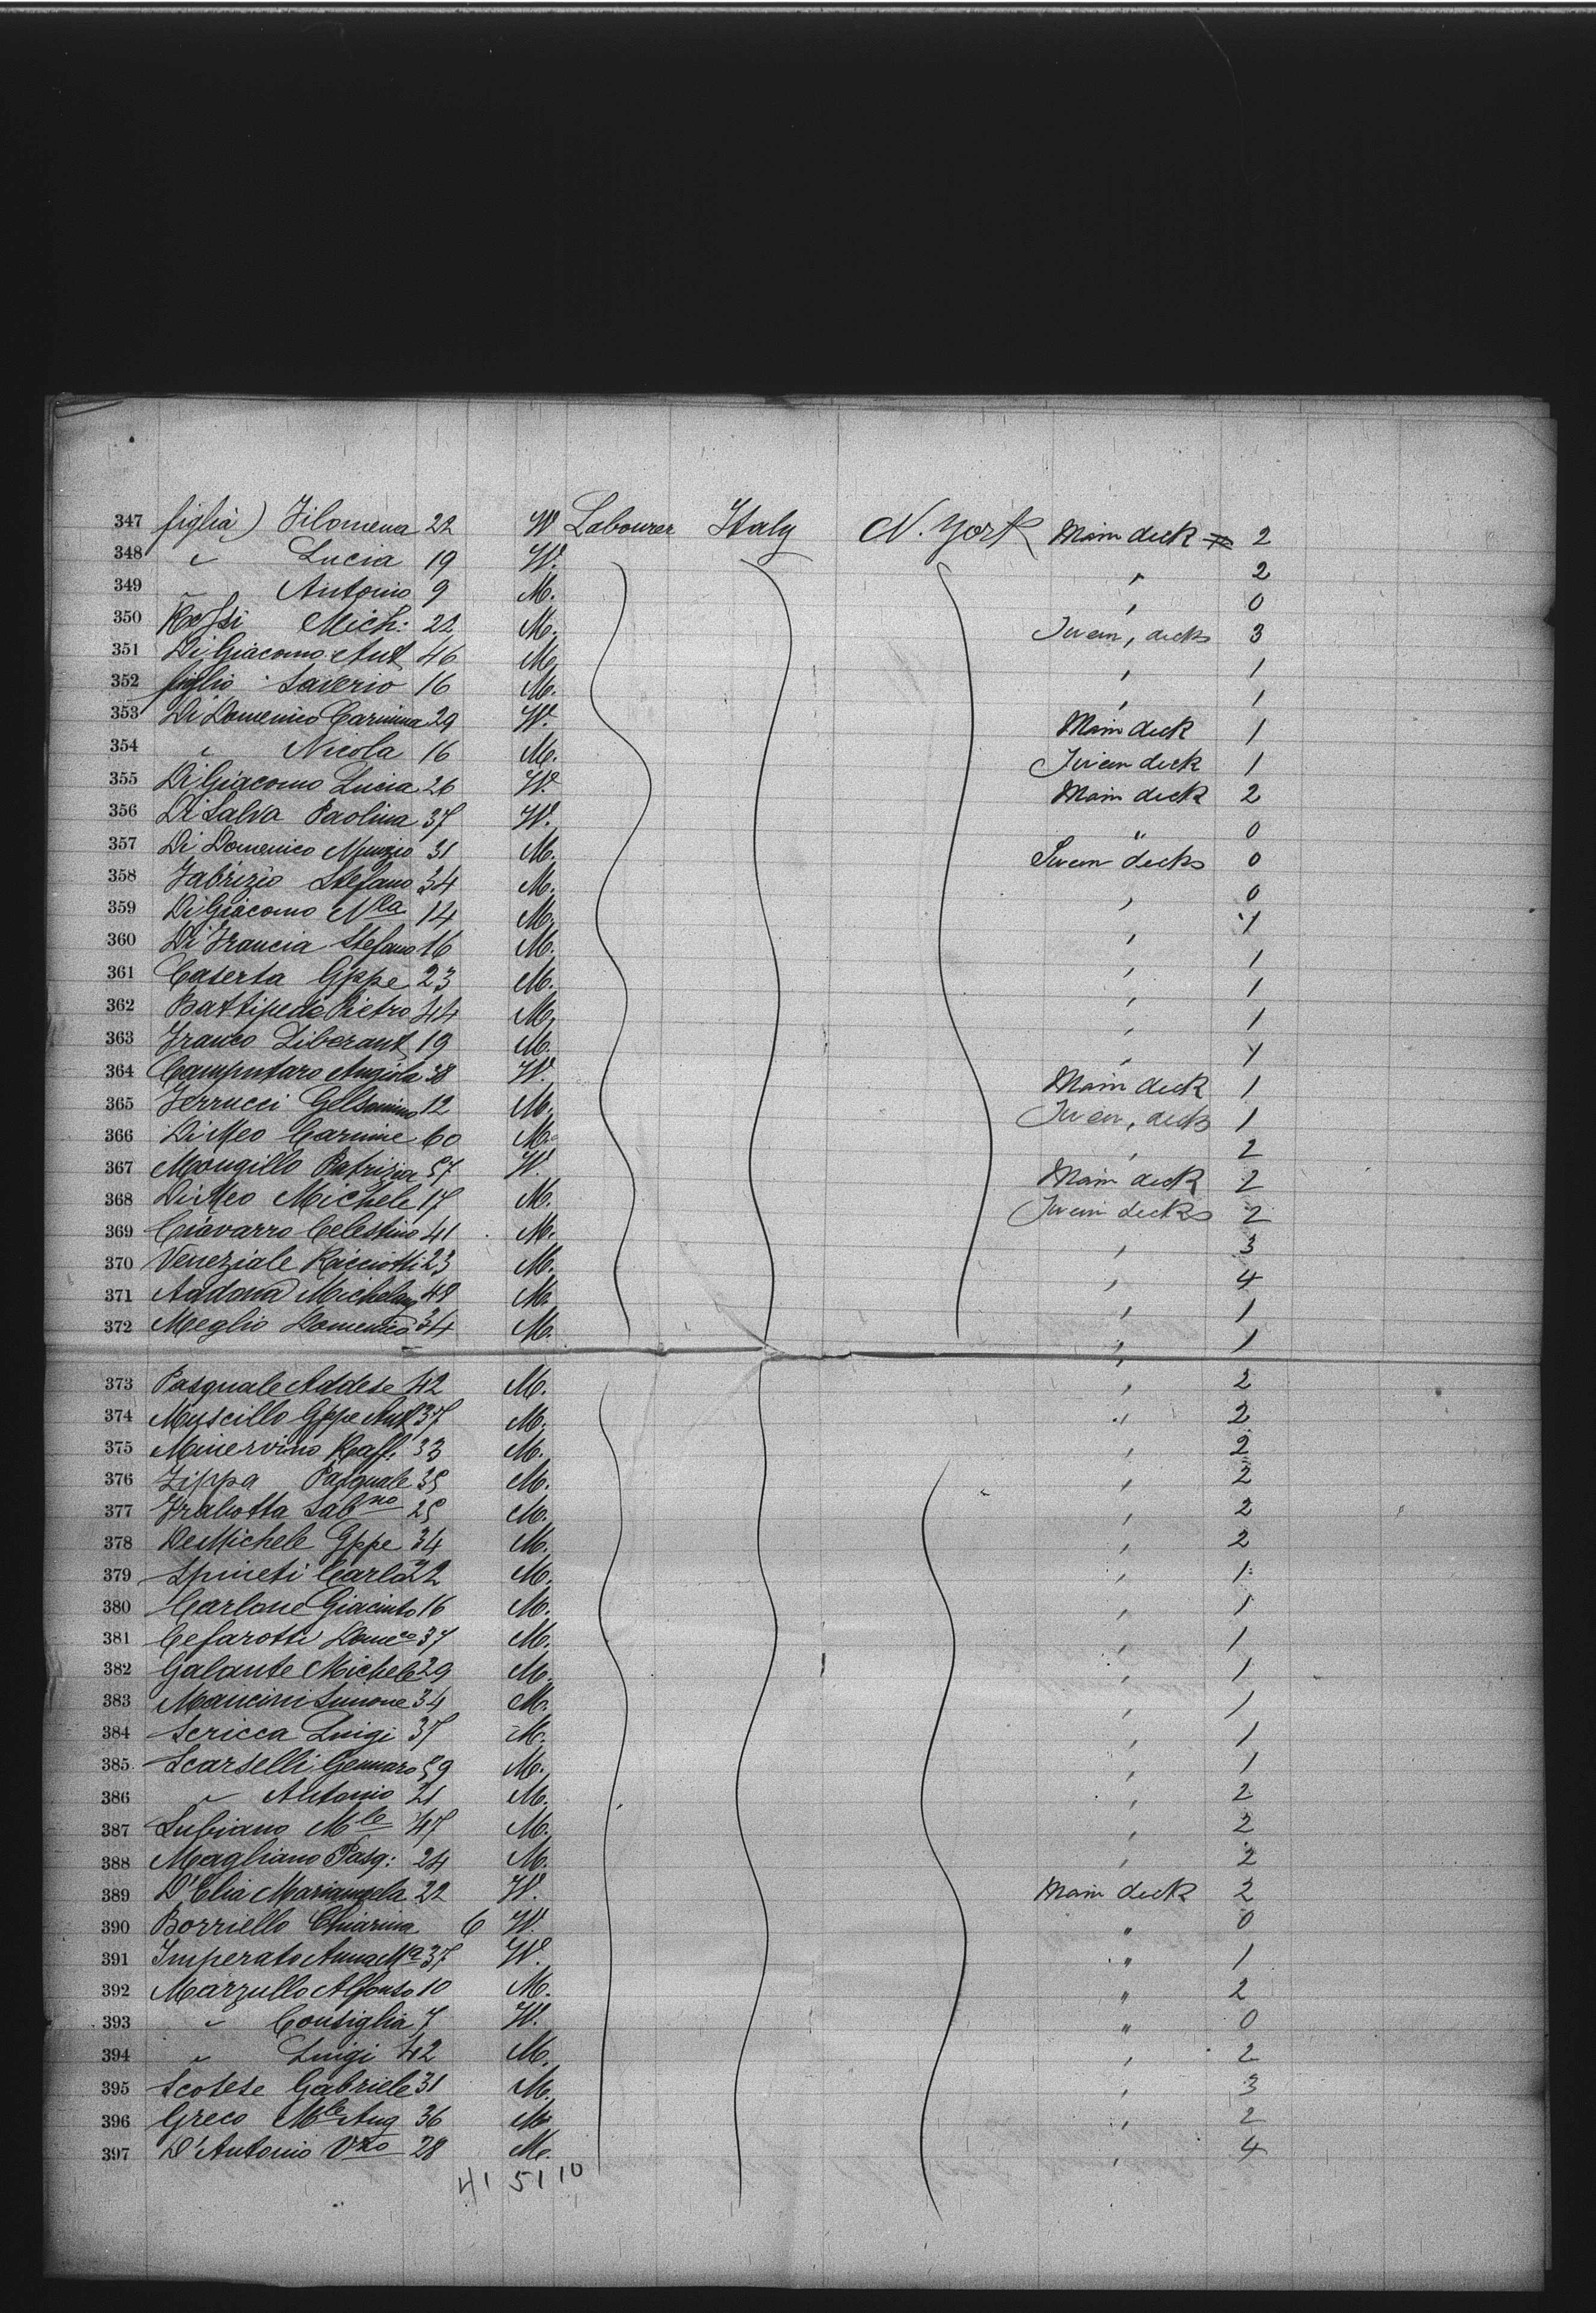 347 figlia) Filomena 22 W Labourer Italy N. York Main deck 2
348 " Lucia 19 W. " 2
349 " Antonio 9 M. " 0
350 Rossi Mich: 22 M. Tween, decks 3
351 Di Giacomo Ant 46 M. " 1
352 figlio Saverio 16 M. " 1
353 Di Domenico Carmina 29 W. Main deck 1
354 " Nicola 16 M. Tween deck 1
355 Di Giacomo Lucia 26 W. Main deck 2
356 Di Salva Paolina 37 W. " 0
357 Di Domenico Nunzio 31 M. Tween decks 0
358 Fabrizio Stefano 34 M. " 0
359 Di Giacomo Nla 14 M. " 1
360 Di Francia Stefano 16 M. " 1
361 Caserta Gppe 23 M. " 1
362 Battipede Pietro 44 M. " 1
363 Franco Liberant 19 M. " 1
364 Camputaro Angiola 38 W. Main deck 1
365 Ferrucci Gelsomino 12 M. Tween, decks 1
366 Di Meo Carmine 60 M. " 2
367 Mongillo Patrizia 57 W. Main deck 2
368 Di Meo Michele 17 M. Tween decks 2
369 Ciavarro Celestino 41 M. " 3
370 Veneziale Ricciotti 23 M. " 4
371 Addona Michelang 48 M. " 1
372 Meglio Domenico 34 M. " 1
373 Pasquale Addese 42 M. " 2
374 Muscillo Gppe Ant 37 M. " 2
375 Minervino Raff. 33 M. " 2
376 Zippa Pasquale 35 M. " 2
377 Frabotta Sabno 25 M. " 2
378 De Michele Gppe 34 M. " 2
379 Spineti Carlo 22 M. " 1
380 Carlone Giacinto 16 M. " 1
381 Cefarotti Domco 37 M. " 1
382 Galante Michele 29 M. " 1
383 Mancini Simone 34 M. " 1
384 Scricca Luigi 37 M. " 1
385 Scarselli Gennaro 59 M. " 1
386 " Antonio 21 M. " 2
387 Lubiano Mle 47 M. " 2
388 Magliano Pasq: 24 M. " 2
389 D'Elia Mariangela 22 W. Main deck 2
390 Borriello Chiarina 6 W. " 0
391 Imperato Anna Ma 37 W. " 1
392 Marzullo Alfonso 10 M. " 2
393 " Consiglia 7 W. " 0
394 " Luigi 42 M. " 2
395 Scotese Gabriele 31 M. " 3
396 Greco Mle Ang 36 M. " 2
397 D'Antonio Vzo 28 M. " 4
41 51 10